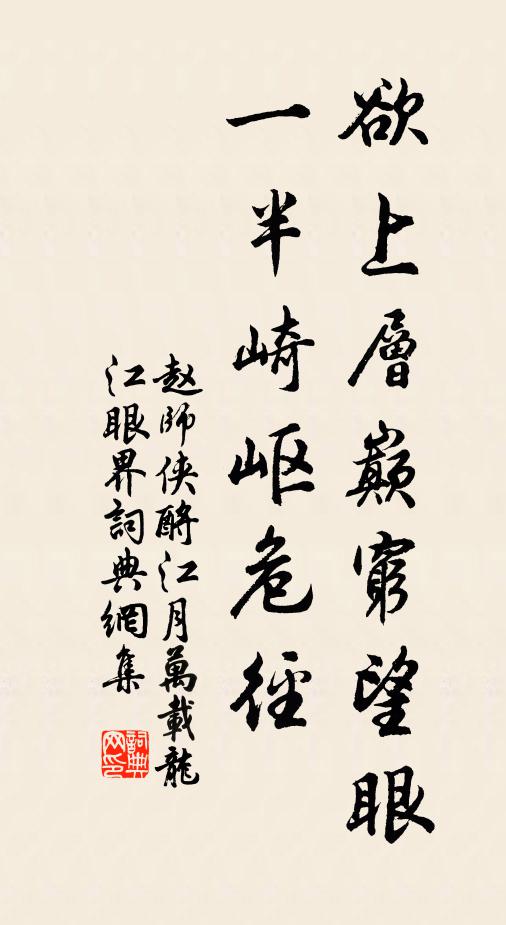 欲上層巔窮望眼
一半崎岖危徑
赵師俠酹江月萬載龍
江眼界詞典網集
詞典网印